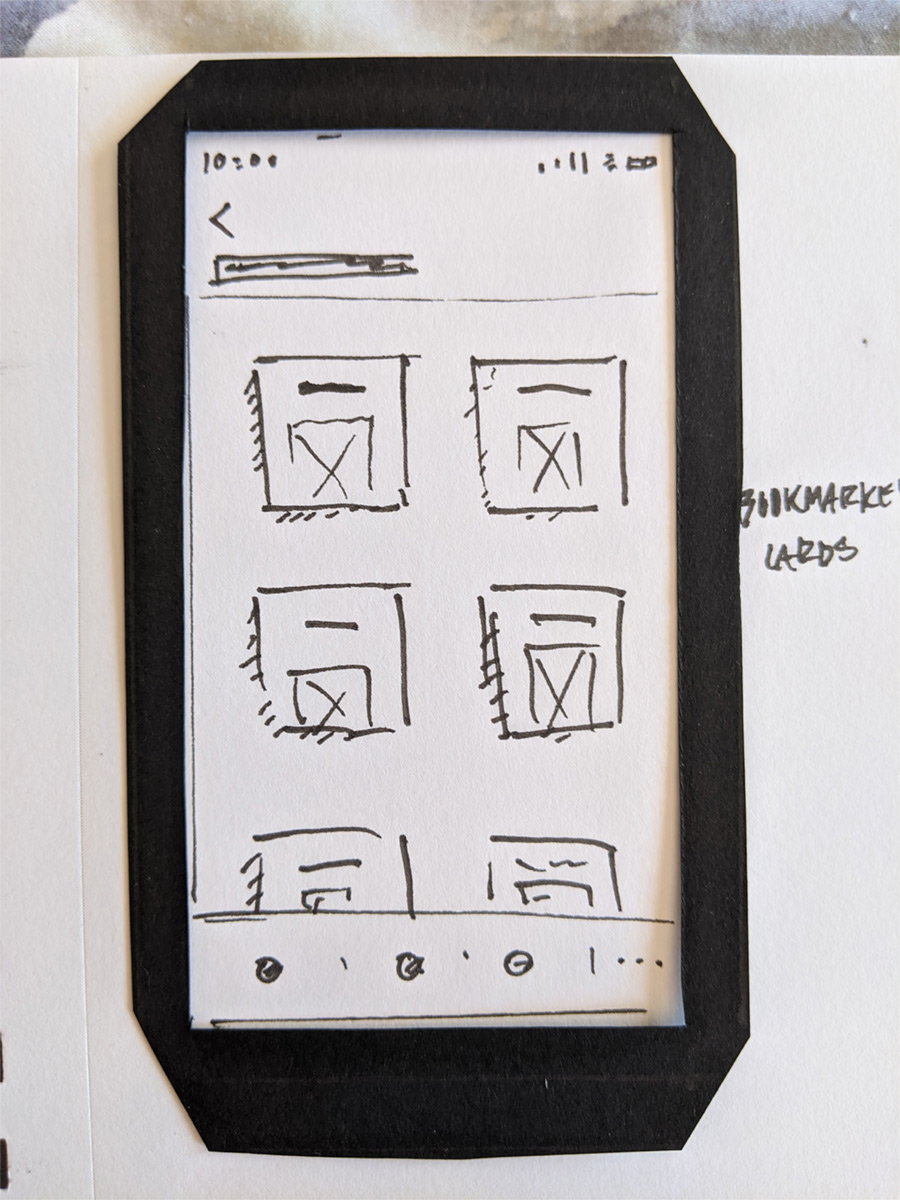 10:00
BOOKMARKE
CARDS